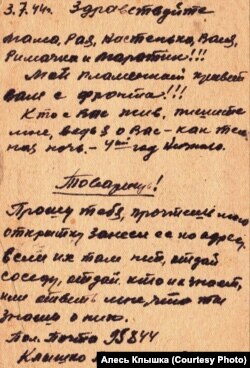 3.7.44г. Здравствуйте
Мама, Рая, Настенька, Валя,
Римочка и Маратик!!!
Мой пламенный привет
вам с фронта!!!
Кто с Вас жив, пишите
мне, ведь о Вас - как тем
ная ночь. - 4ый год ничего.
Товарищ!
Прошу тебя, прочтеш мою
открытку занеси ее по адресу,
если их там нет, отдай
соседу, отдай кто их знает,
или ответь мне, что ты
знаеш о них.
Пол. Почта 95844
Клышко
Алесь Клышка (Courtesy Photo)